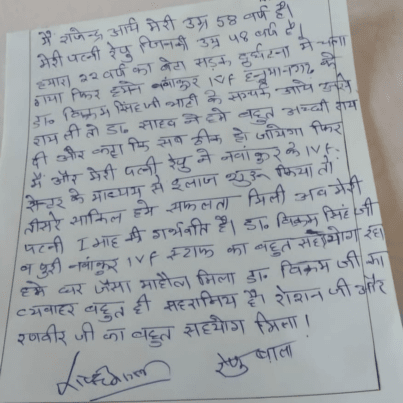 मैं राजेन्द्र आर्य मेरी उम्र 58 वर्ष है।
मेरी पत्नी रेणु जिनकी उम्र 48 वर्ष है
हमारा 22 वर्ष का बेटा सड़क दुर्घटना में चला
गया फिर हमने नवांकुर IVF हनुमानगढ़ के
डा. विक्रम सिंह जी के सम्पर्क आये उनसे
राय ली तो डा. साहब ने हमे बहुत अच्छी राय
दी और कहा कि सब ठीक हो जायेगा फिर
में और मेरी पत्नी रेणु ने नवांकुर के IVF
सेन्टर के माध्यम से इलाज शुरू किया तो
तीसरे साकिल हमे सफलता मिली अब मेरी
पत्नी 1 माह की गर्भवती है। डा. विक्रम सिंह जी
व पुरी नवांकुर IVF स्टाफ का बहुत सहयोग रहा
हमे घर जैसा माहौल मिला डा. विक्रम जी का
व्यवाहर बहुत ही सहरानिय है। रोशन जी और
रणवीर जी का बहुत सहयोग मिला!
रेणु बाला